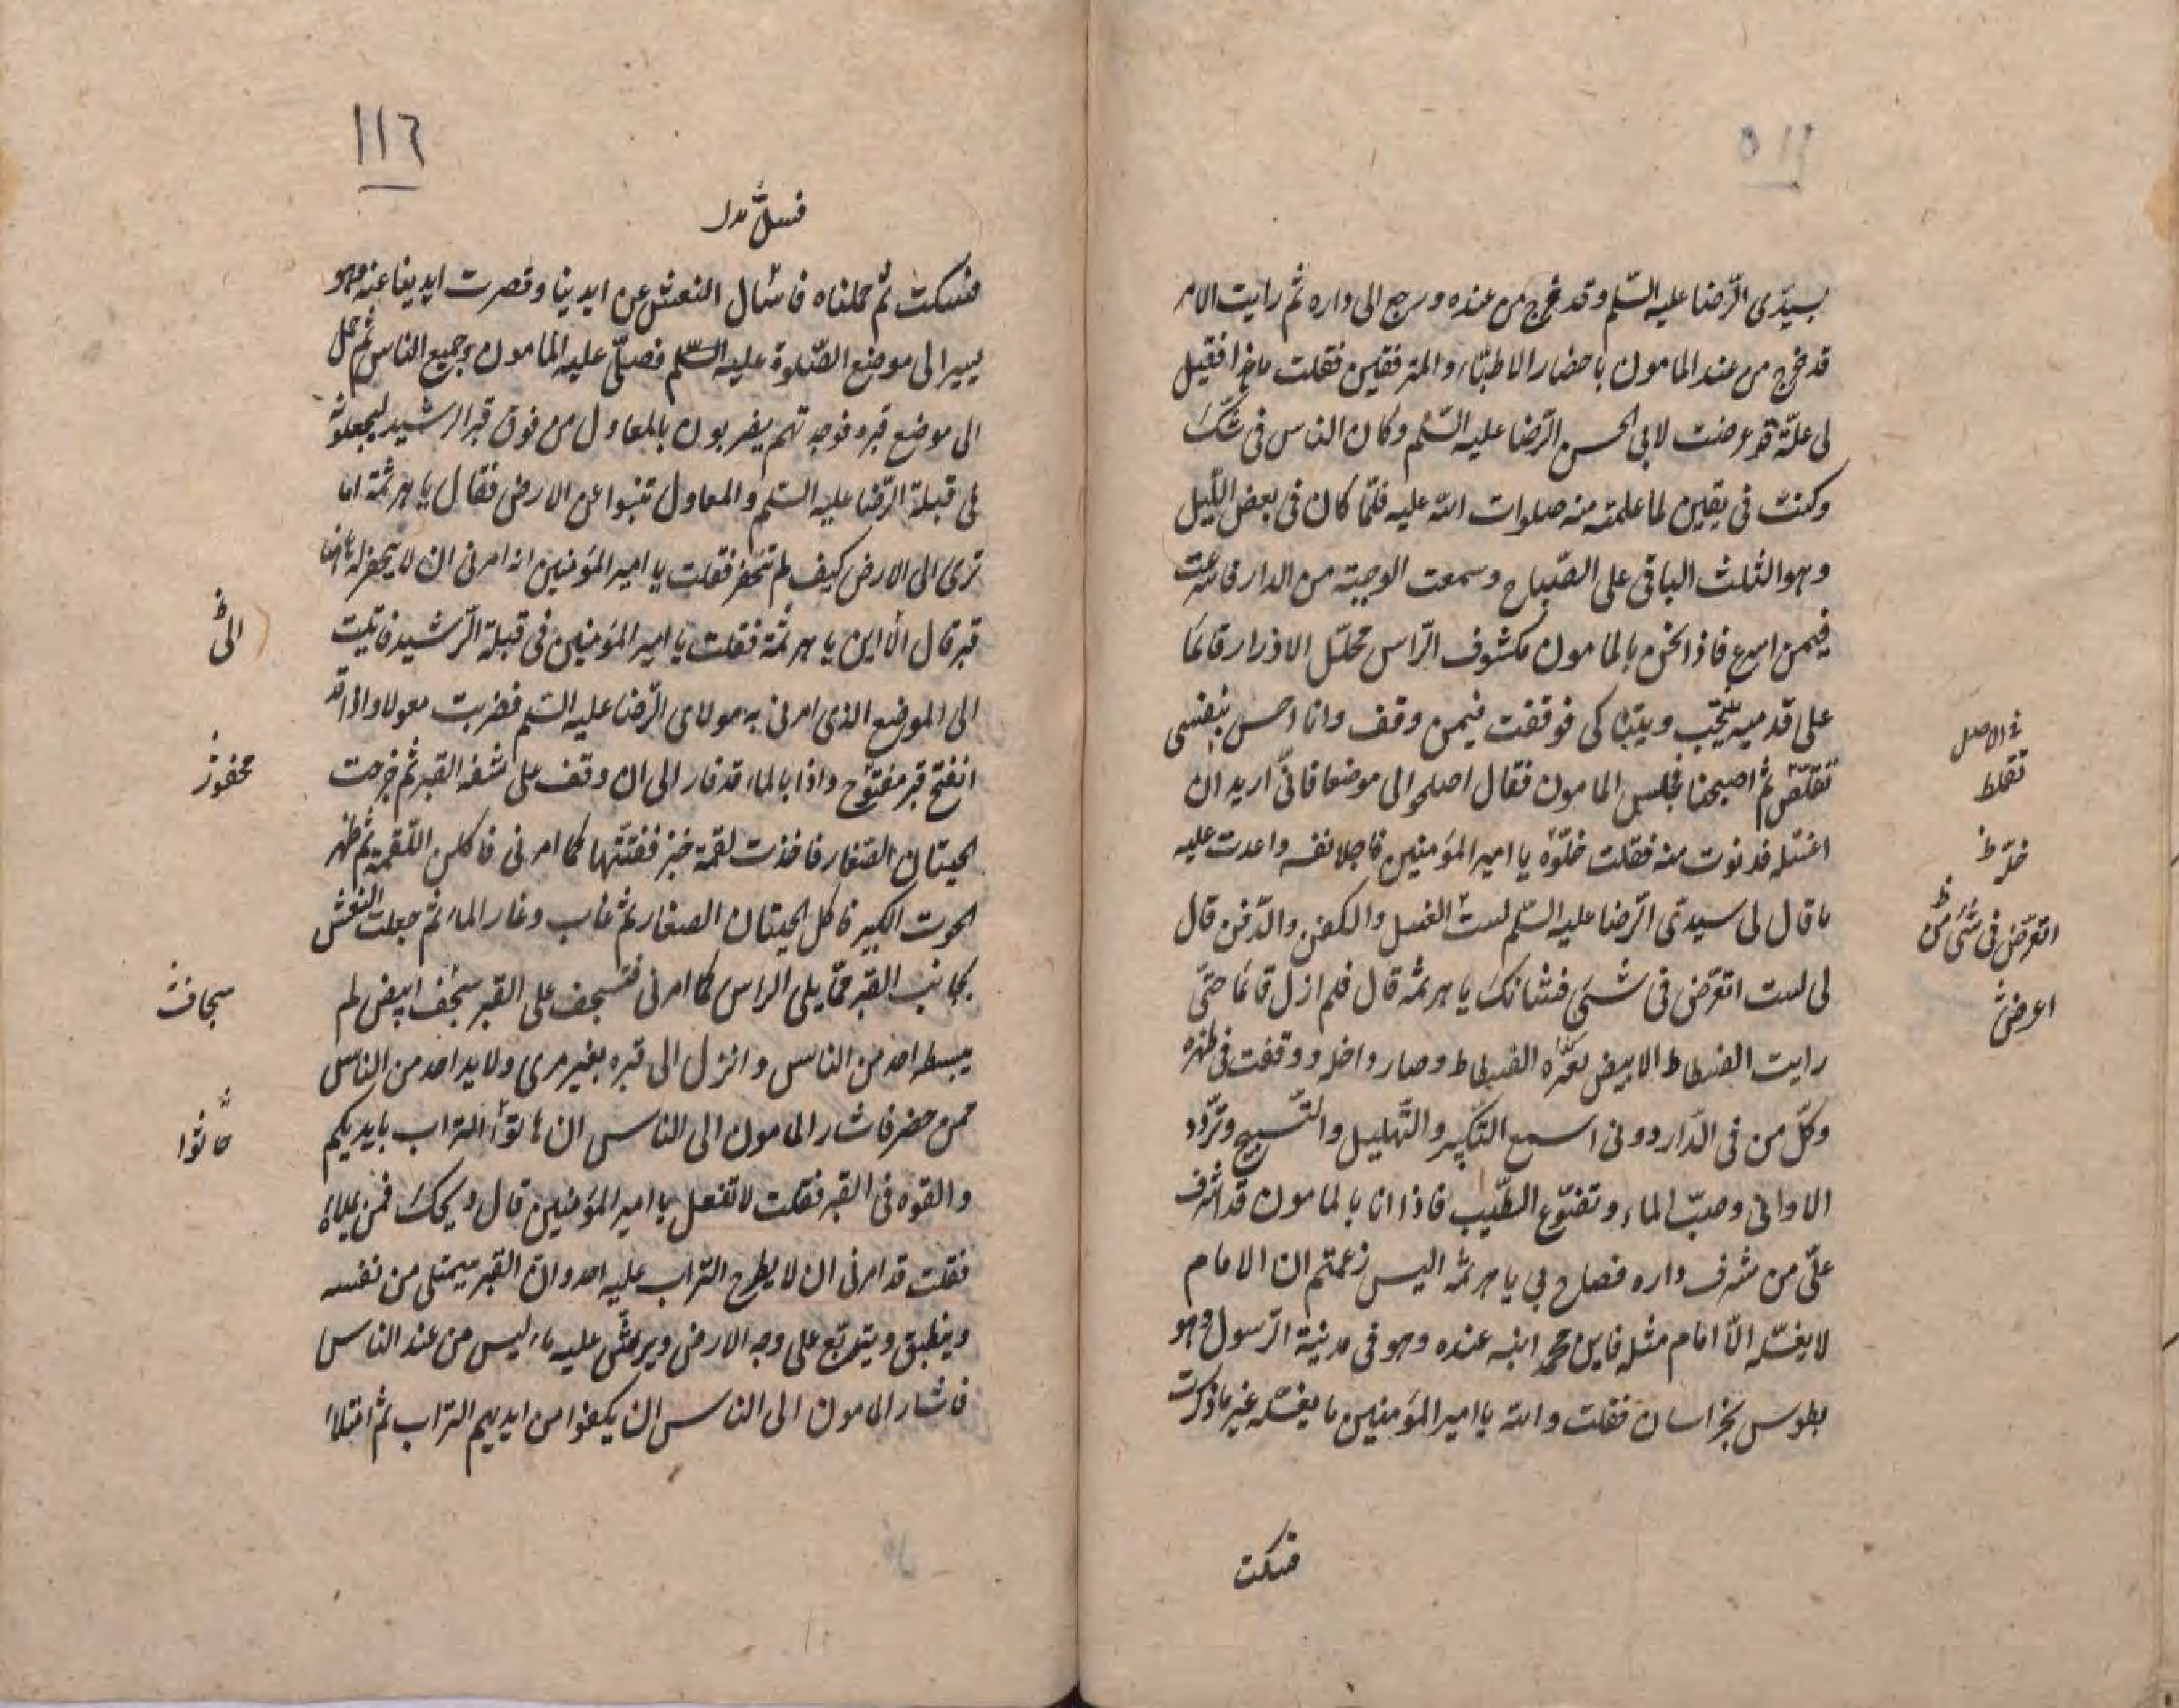 ١١٥
بسيّدى الرّضا عليه السّلم وقد خرج من عنده ورجع الى داره ثم رايت الامر
قد خرج من عند المامون باحضار الاطبّاء والمترفقين فقلت ما هذا فقيل
لى علّة قد عرضت لابى الحسن الرّضا عليه السّلم وكان الناس فى شكّ
وكنت فى يقين لما علمته منه صلوات الله عليه فلمّا كان فى بعض اللّيل
وهو الثلث الباقى على الصّباح وسمعت الوجبة من الدار فاسرعت
فيمن اسرع فاذا نحن بالمامون مكشوف الرّاس محلّل الازرار قائما
على قدميه ينتحب ويتباكى فوقفت فيمن وقف وانا احس بنفسى
تقلّص ثم اصبحنا فجلس المامون فقال اصلحوا لى موضعا فانّى اريد ان
اغسّله فدنوت منه فقلت خلّوه يا امير المؤمنين فاجلا نفسه واعدت عليه
ما قال لى سيدى الرّضا عليه السّلم لسبب الغسل والكفن والدّفن قال
لى لست اتعرّض فى شىء فشانك يا هرثمة قال فلم ازل قائما حتّى
رايت الفسطاط الابيض الفسطاط وصار داخله ووقفت فى ظهره
وكلّ من فى الدّار دونى اسمع التّكبير والتّهليل والتّسبيح وتردّد
الاوانى وصبّ الماء وتضوّع الطّيب فاذا انا بالمامون قد اشرف
علىّ من شرف داره فصاح بى يا هرثمة اليس زعمتم ان الامام
لا يغسّله الّا امام مثله فاين محمد ابنه عنده وهو فى مدينة الرّسول وهو
بطوس بخراسان فقلت والله يا امير المؤمنين ما يغسّله غير ما ذكرت
فسكت
فى الاصل
تقلط
خلّ ظ
اتعرّض فى شىء من ظ
اعرض
١١٦
فسكت ثم حملناه فاشال النعش عن ايدينا وقصرت ايدينا عنه وهو
يسير الى موضع الصّلوة عليه السّلم فصلّى عليه المامون وجميع الناس ثم حمل
الى موضع قبره فوجدتهم يضربون بالمعاول من فوق قبر الرشيد ليجعلونه
فى قبلة الرّضا عليه السّلم والمعاول تنبوا عن الارض فقال يا هرثمة اما
ترى الى الارض كيف لم تنحفر فقلت يا امير المؤمنين انه امرنى ان لا يحفر له هاهنا
قبر قال الّا اين يا هرثمة فقلت يا امير المؤمنين فى قبلة الرّشيد فاتيت
الى الموضع الذى امرنى به مولاى الرّضا عليه السّلم فضربت معولا واذا قد
انفتح قبر مفتوح واذا بالماء قد فار الى ان وقف على شفه القبر ثم خرجت
الحيتان الصّغار فاخذت لقمة خبز ففتّتها كما امرنى فاكلن اللّقمة ثم ظهر
الحوت الكبير فاكل الحيتان الصغار ثم غاب وغار الماء ثم جعلت النعش
بجانب القبر ممّا يلى الراس كما امرنى فسجف على القبر سجف ابيض لم
يبسطه احد من الناس وانزل الى قبره بغير مرى ولا يد احد من الناس
ممن حضر فاشار المامون الى الناس ان هاتوا التراب بايديكم
والقوه فى القبر فقلت لا تفعل يا امير المؤمنين قال ويحك فمن يملاه
فقلت قد امرنى ان لا يطرح التراب عليه احد وانّ القبر يمتلى من نفسه
وينطبق ويتربّع على وجه الارض ويرشّ عليه ماء ليس من عند الناس
فاشار المامون الى الناس ان يكفوا من ايديهم التراب ثم امتلا
الى
محفور
سجاف
حاثوا